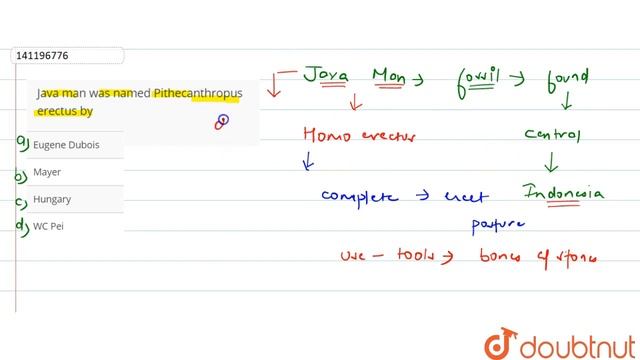 141196776
Java man was named Pithecanthropus
erectus by
a) Eugene Dubois
b) Mayer
c) Hungary
d) WC Pei
Java Man → fossil → found
Homo erectus
central
Indonesia
complete → erect
posture
use - tools → bones & stones
doubtnut